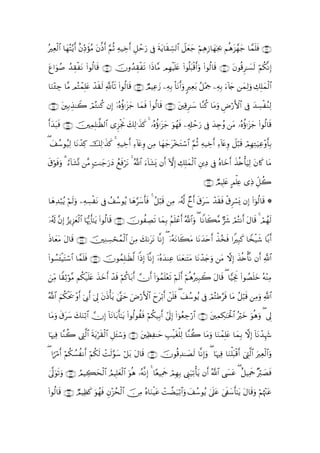 فَلَمَّا جَهَّزَهُم بِجَهَازِهِمْ جَعَلَ السِّقَايَةَ فِي رَحْلِ أَخِيهِ ثُمَّ أَذَّنَ مُؤَذِّنٌ أَيَّتُهَا الْعِيرُ
إِنَّكُمْ لَسَارِقُونَ ۝ قَالُوا وَأَقْبَلُوا عَلَيْهِم مَّاذَا تَفْقِدُونَ ۝ قَالُوا نَفْقِدُ صُوَاعَ
الْمَلِكِ وَلِمَن جَاءَ بِهِ حِمْلُ بَعِيرٍ وَأَنَا بِهِ زَعِيمٌ ۝ قَالُوا تَاللَّهِ لَقَدْ عَلِمْتُم مَّا جِئْنَا
لِنُفْسِدَ فِي الْأَرْضِ وَمَا كُنَّا سَارِقِينَ ۝ قَالُوا فَمَا جَزَاؤُهُ إِن كُنتُمْ كَاذِبِينَ ۝
قَالُوا جَزَاؤُهُ مَن وُجِدَ فِي رَحْلِهِ فَهُوَ جَزَاؤُهُ ۚ كَذَٰلِكَ نَجْزِي الظَّالِمِينَ ۝ فَبَدَأَ
بِأَوْعِيَتِهِمْ قَبْلَ وِعَاءِ أَخِيهِ ثُمَّ اسْتَخْرَجَهَا مِن وِعَاءِ أَخِيهِ ۚ كَذَٰلِكَ كِدْنَا لِيُوسُفَ ۖ
مَا كَانَ لِيَأْخُذَ أَخَاهُ فِي دِينِ الْمَلِكِ إِلَّا أَن يَشَاءَ اللَّهُ ۚ نَرْفَعُ دَرَجَاتٍ مَّن نَّشَاءُ ۗ وَفَوْقَ
كُلِّ ذِي عِلْمٍ عَلِيمٌ ۝
۞ قَالُوا إِن يَسْرِقْ فَقَدْ سَرَقَ أَخٌ لَّهُ مِن قَبْلُ ۚ فَأَسَرَّهَا يُوسُفُ فِي نَفْسِهِ وَلَمْ يُبْدِهَا
لَهُمْ ۚ قَالَ أَنتُمْ شَرٌّ مَّكَانًا ۖ وَاللَّهُ أَعْلَمُ بِمَا تَصِفُونَ ۝ قَالُوا يَا أَيُّهَا الْعَزِيزُ إِنَّ لَهُ
أَبًا شَيْخًا كَبِيرًا فَخُذْ أَحَدَنَا مَكَانَهُ ۖ إِنَّا نَرَاكَ مِنَ الْمُحْسِنِينَ ۝ قَالَ مَعَاذَ
اللَّهِ أَن نَّأْخُذَ إِلَّا مَن وَجَدْنَا مَتَاعَنَا عِندَهُ إِنَّا إِذًا لَّظَالِمُونَ ۝ فَلَمَّا اسْتَيْأَسُوا
مِنْهُ خَلَصُوا نَجِيًّا ۖ قَالَ كَبِيرُهُمْ أَلَمْ تَعْلَمُوا أَنَّ أَبَاكُمْ قَدْ أَخَذَ عَلَيْكُم مَّوْثِقًا مِّنَ
اللَّهِ وَمِن قَبْلُ مَا فَرَّطتُمْ فِي يُوسُفَ ۖ فَلَنْ أَبْرَحَ الْأَرْضَ حَتَّىٰ يَأْذَنَ لِي أَبِي أَوْ يَحْكُمَ اللَّهُ
لِي ۖ وَهُوَ خَيْرُ الْحَاكِمِينَ ۝ ارْجِعُوا إِلَىٰ أَبِيكُمْ فَقُولُوا يَا أَبَانَا إِنَّ ابْنَكَ سَرَقَ وَمَا
شَهِدْنَا إِلَّا بِمَا عَلِمْنَا وَمَا كُنَّا لِلْغَيْبِ حَافِظِينَ ۝ وَاسْأَلِ الْقَرْيَةَ الَّتِي كُنَّا فِيهَا
وَالْعِيرَ الَّتِي أَقْبَلْنَا فِيهَا ۖ وَإِنَّا لَصَادِقُونَ ۝ قَالَ بَلْ سَوَّلَتْ لَكُمْ أَنفُسُكُمْ أَمْرًا ۖ
فَصَبْرٌ جَمِيلٌ ۖ عَسَى اللَّهُ أَن يَأْتِيَنِي بِهِمْ جَمِيعًا ۚ إِنَّهُ هُوَ الْعَلِيمُ الْحَكِيمُ ۝ وَتَوَلَّىٰ
عَنْهُمْ وَقَالَ يَا أَسَفَىٰ عَلَىٰ يُوسُفَ وَابْيَضَّتْ عَيْنَاهُ مِنَ الْحُزْنِ فَهُوَ كَظِيمٌ ۝ قَالُوا